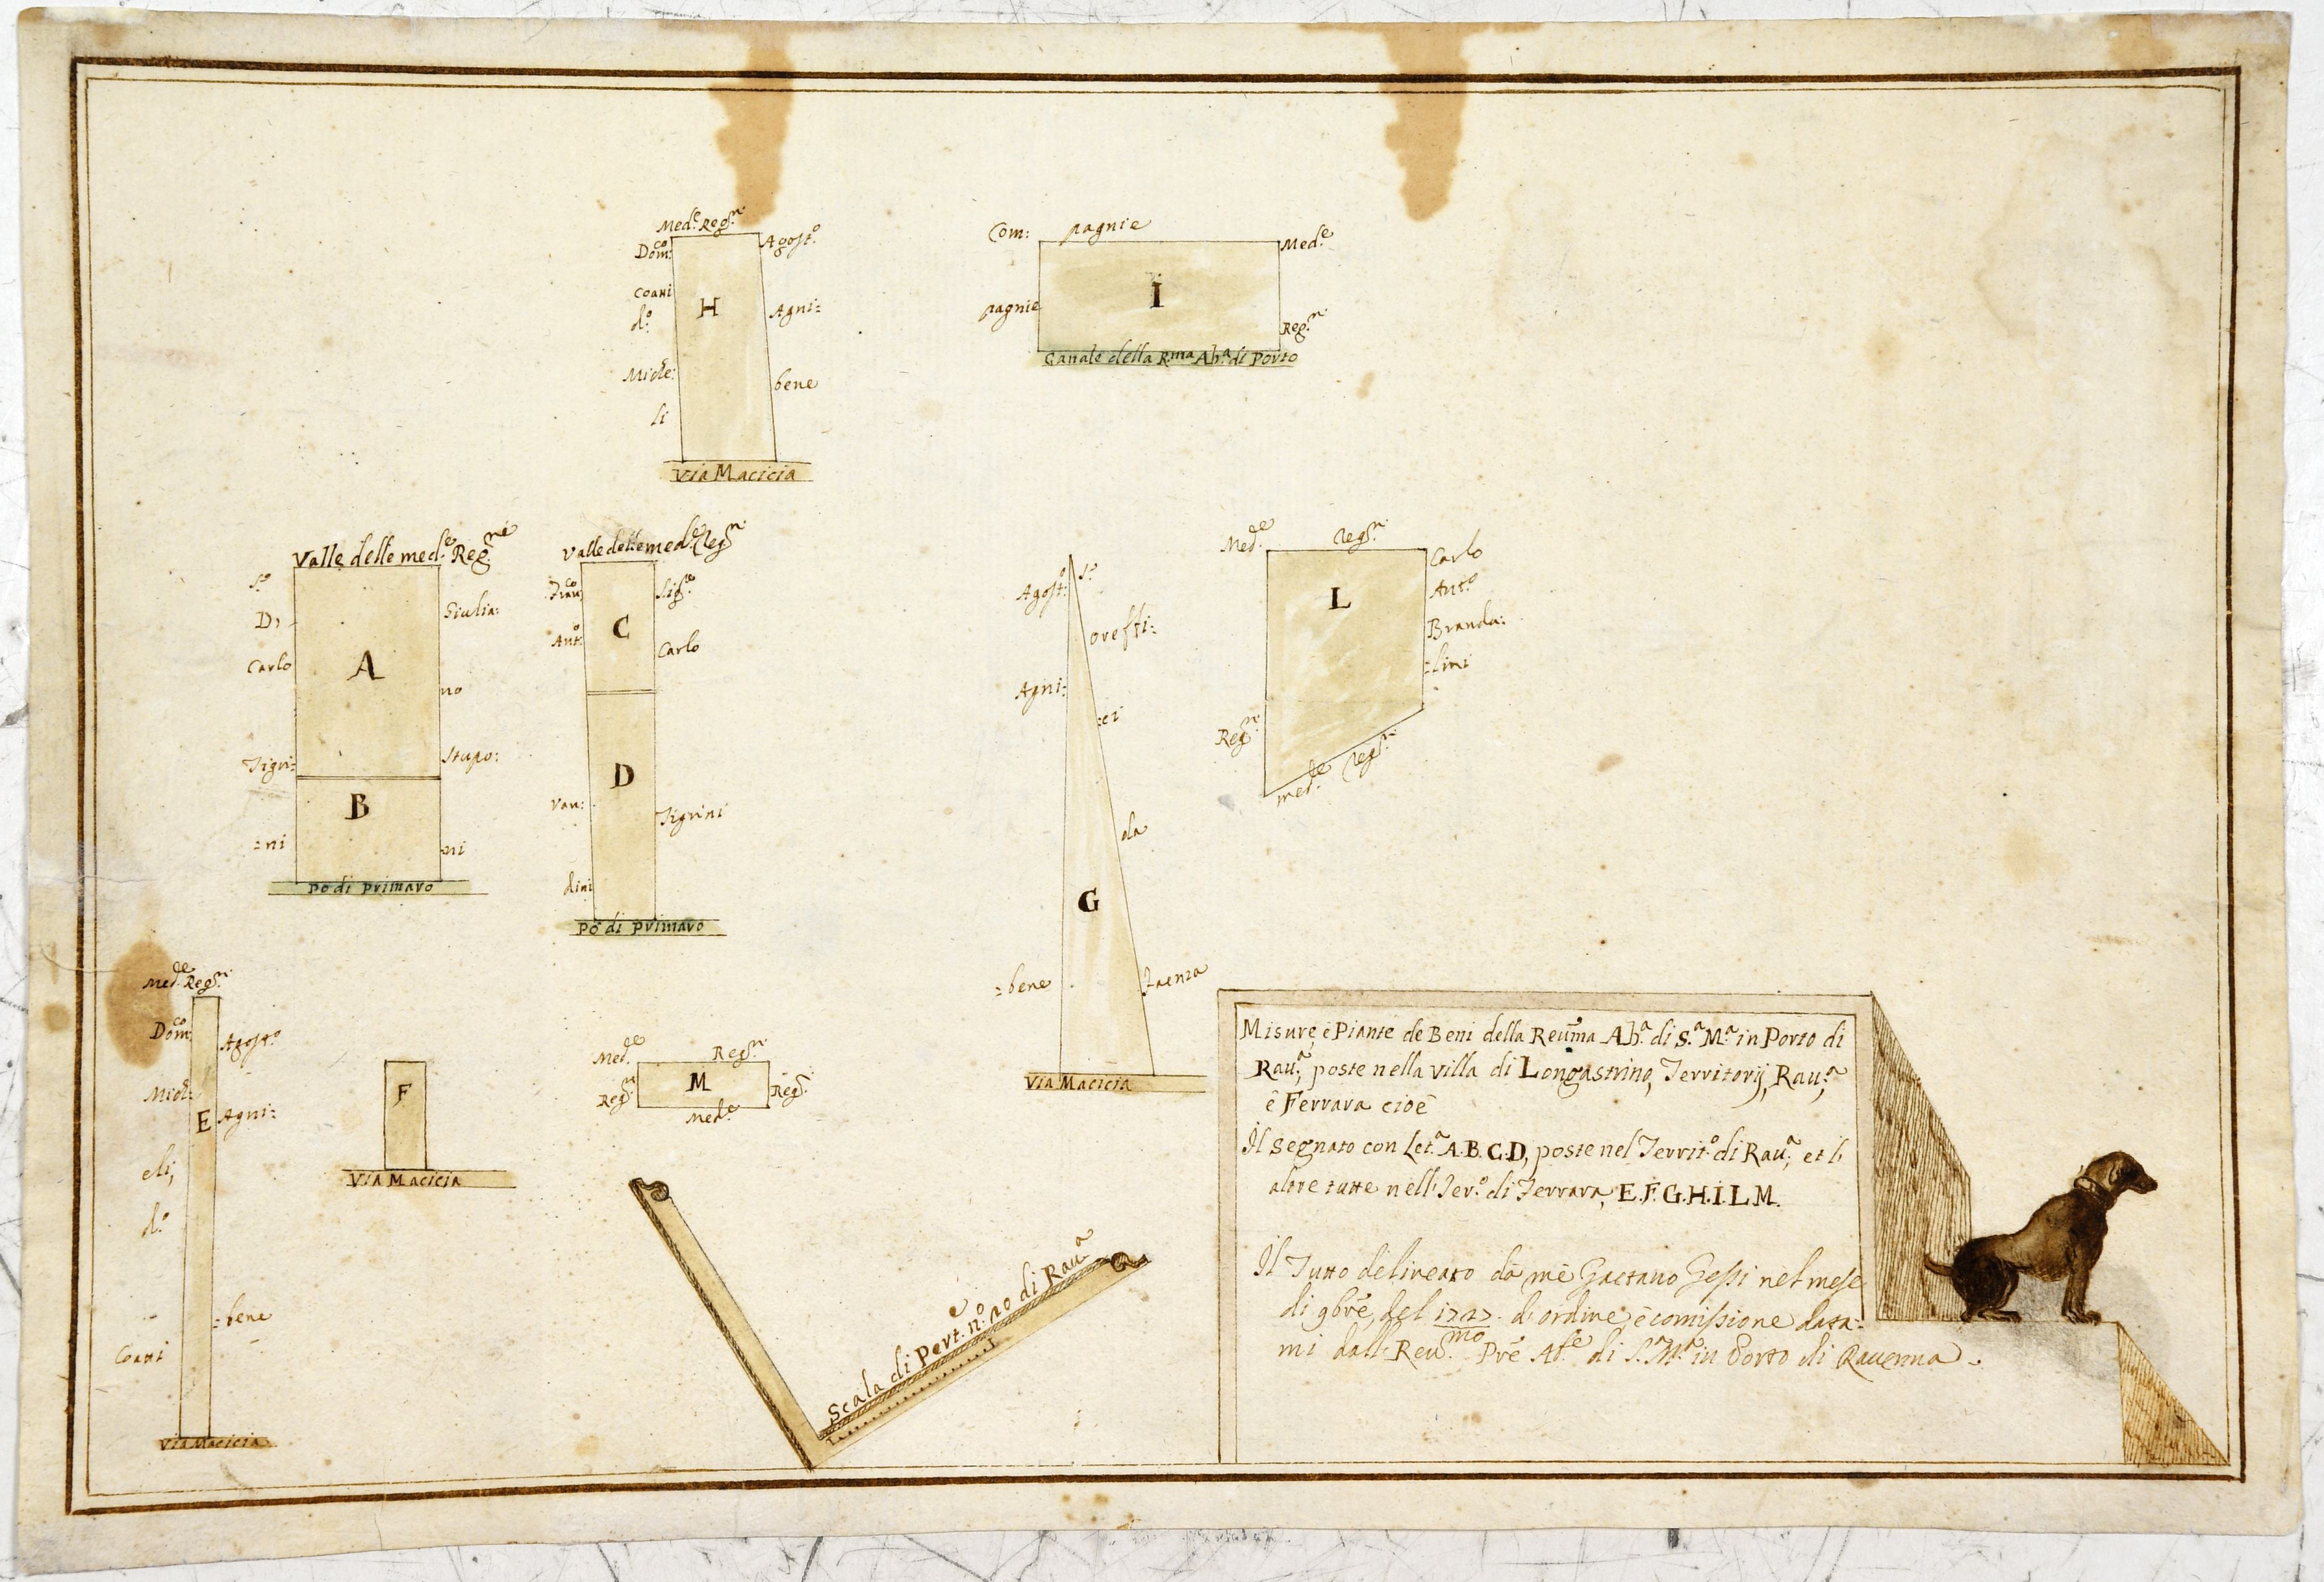 Med.e Reg.n
Dom.co
Coani
d.o
Miche:
li
H
Agost.o
Agni:
bene
Via Macicia
Com: pagnie
pagnie
I
Med.e
Reg.n
Canale della R.ma Ab.a di Porto
Valle delle med.e Reg.ne
S.r
Carlo
Tigri:
=ni
A
B
Giulia:
no
Stupo:
=ni
Po di Primaro
Valle delle med.e Reg.n
Fran.co
Ant.o
Van:
dini
C
D
Sig.re
Carlo
Tigrini
Po di Primaro
Agost.o
Agni:
=bene
G
S.r
oreffi:
:ci
da
Faenza
Via Macicia
Med.ee Reg.n
Reg.n
L
Carlo
Ant.o
Branda:
=lini
med.e Reg.n
Med.ee Reg.n
Dom.co
Mich:
eli,
d.o
Coani
E
Agost.o
Agni:
=bene
Via Macicia
F
Via Macicia
Med.ee Reg.n
Reg.n
M
Reg.n
Med.e
Scala di Pert.e n.o 20 di Rau.a
Misure, è Piante de Beni della Reu.ma Ab.a di S.a M.a in Porto di
Rau.a, poste nella villa di Longastrino, Territorij, Rau.a,
è Ferrara cioè
Il segnato con Let.a A.B.C.D, poste nel Territ.o di Rau.a, et li
altre tutte nell Ter.o di Ferrara, E.F.G.H.I.L.M.
Il Tutto delineato dà mè Gaetano Gessi nel mese
di 9bre, del 1727. d'ordine, è comissione data=
mi dall Reu.mo Prè Ab.e di S.a M.a in Porto di Rauenna.